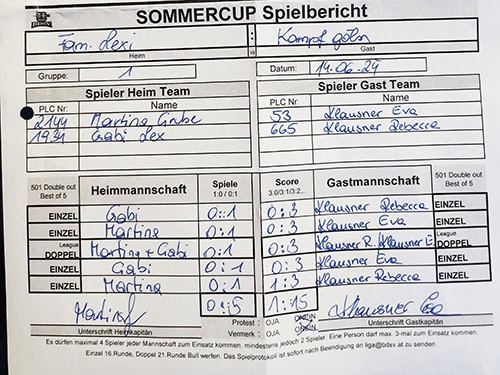 SOMMERCUP Spielbericht
Fam. Lexi
vs
Kampfgölsn
Heim
Gast
Gruppe: 1
Datum: 14.06.24
Spieler Heim Team
Spieler Gast Team
PLC Nr: Name
PLC Nr: Name
2144 Martina Grube
53 Klausner Eva
1931 Gabi Lex
665 Klausner Rebecca
501 Double out Best of 5 Heimmannschaft Spiele 1:0 / 0:1 Score 3:0/3:1/3:2... Gastmannschaft 501 Double out Best of 5
EINZEL Gabi 0:1 0:3 Klausner Rebecca EINZEL
EINZEL Martina 0:1 0:3 Klausner Eva EINZEL
League DOPPEL Martina + Gabi 0:1 0:3 Klausner R. Klausner E. League DOPPEL
EINZEL Gabi 0:1 0:3 Klausner Eva EINZEL
EINZEL Martina 0:1 1:3 Klausner Rebecca EINZEL
0:5 1:15
Martina
Klausner Eva
Protest : OJA ONEIN
Unterschrift Heimkapitän
Vermerk : OJA ONEIN
Unterschrift Gastkapitän
Es dürfen maximal 4 Spieler jeder Mannschaft zum Einsatz kommen, mindestens jedoch 2 Spieler. Eine Person darf max. 3-mal zum Einsatz kommen.
Einzel 16.Runde, Doppel 21.Runde Bull werfen. Das Spielprotokoll ist sofort nach Beendigung an liga@bdsv.at zu senden.